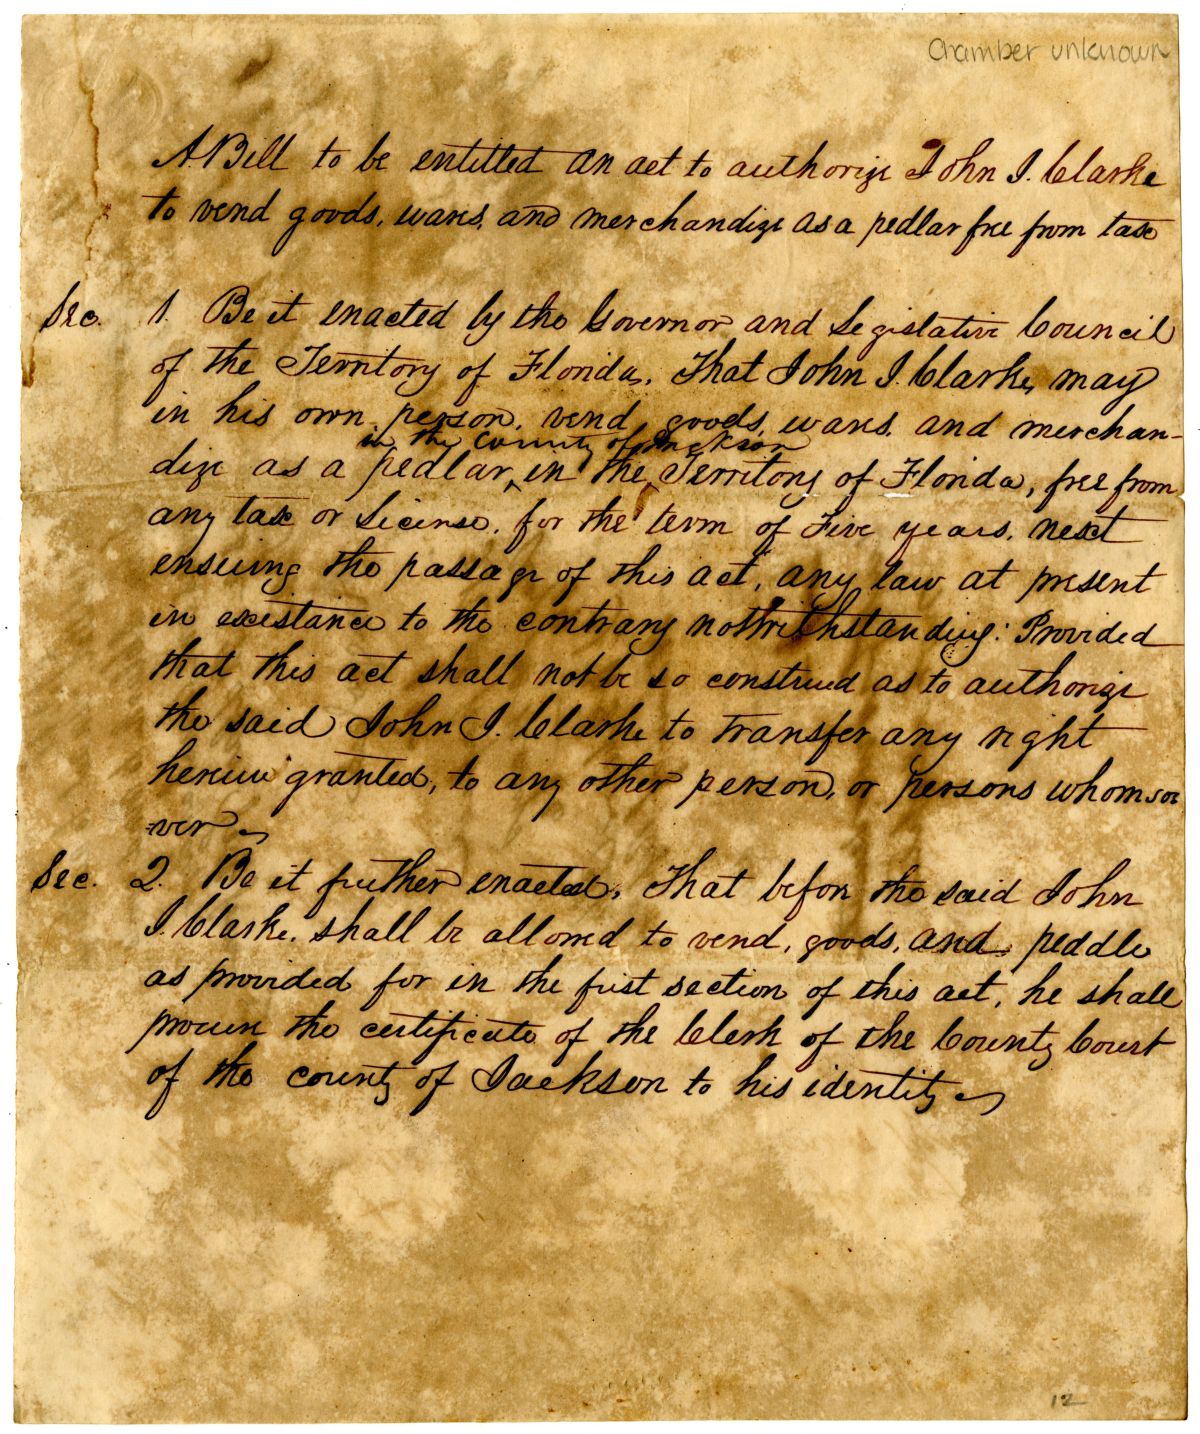 Chamber unknown
A Bill to be entitled an act to authorize John I. Clarke
to vend goods, wares, and merchandize as a pedlar free from tax
Sec. 1. Be it enacted by the Governor and Legislative Council
of the Territory of Florida, That John I. Clarke, may
in his own person, vend goods, wares, and merchan-
in the County of Jackson
dize as a pedlar, in the Territory of Florida, free from
any tax or License, for the term of Five years, next
ensuing the passage of this act, any law at present
in existance to the contrary nothwithstanding: Provided
that this act shall not be so construed as to authorize
the said John I. Clarke to transfer any right
herein granted, to any other person, or persons whomsoe
-ver
Sec. 2. Be it further enacted, That before the said John
I. Clarke, shall be allowed to vend, goods, and peddle
as provided for in the first section of this act, he shall
procure the certificate of the Clerk of the County Court
of the county of Jackson to his identity
12